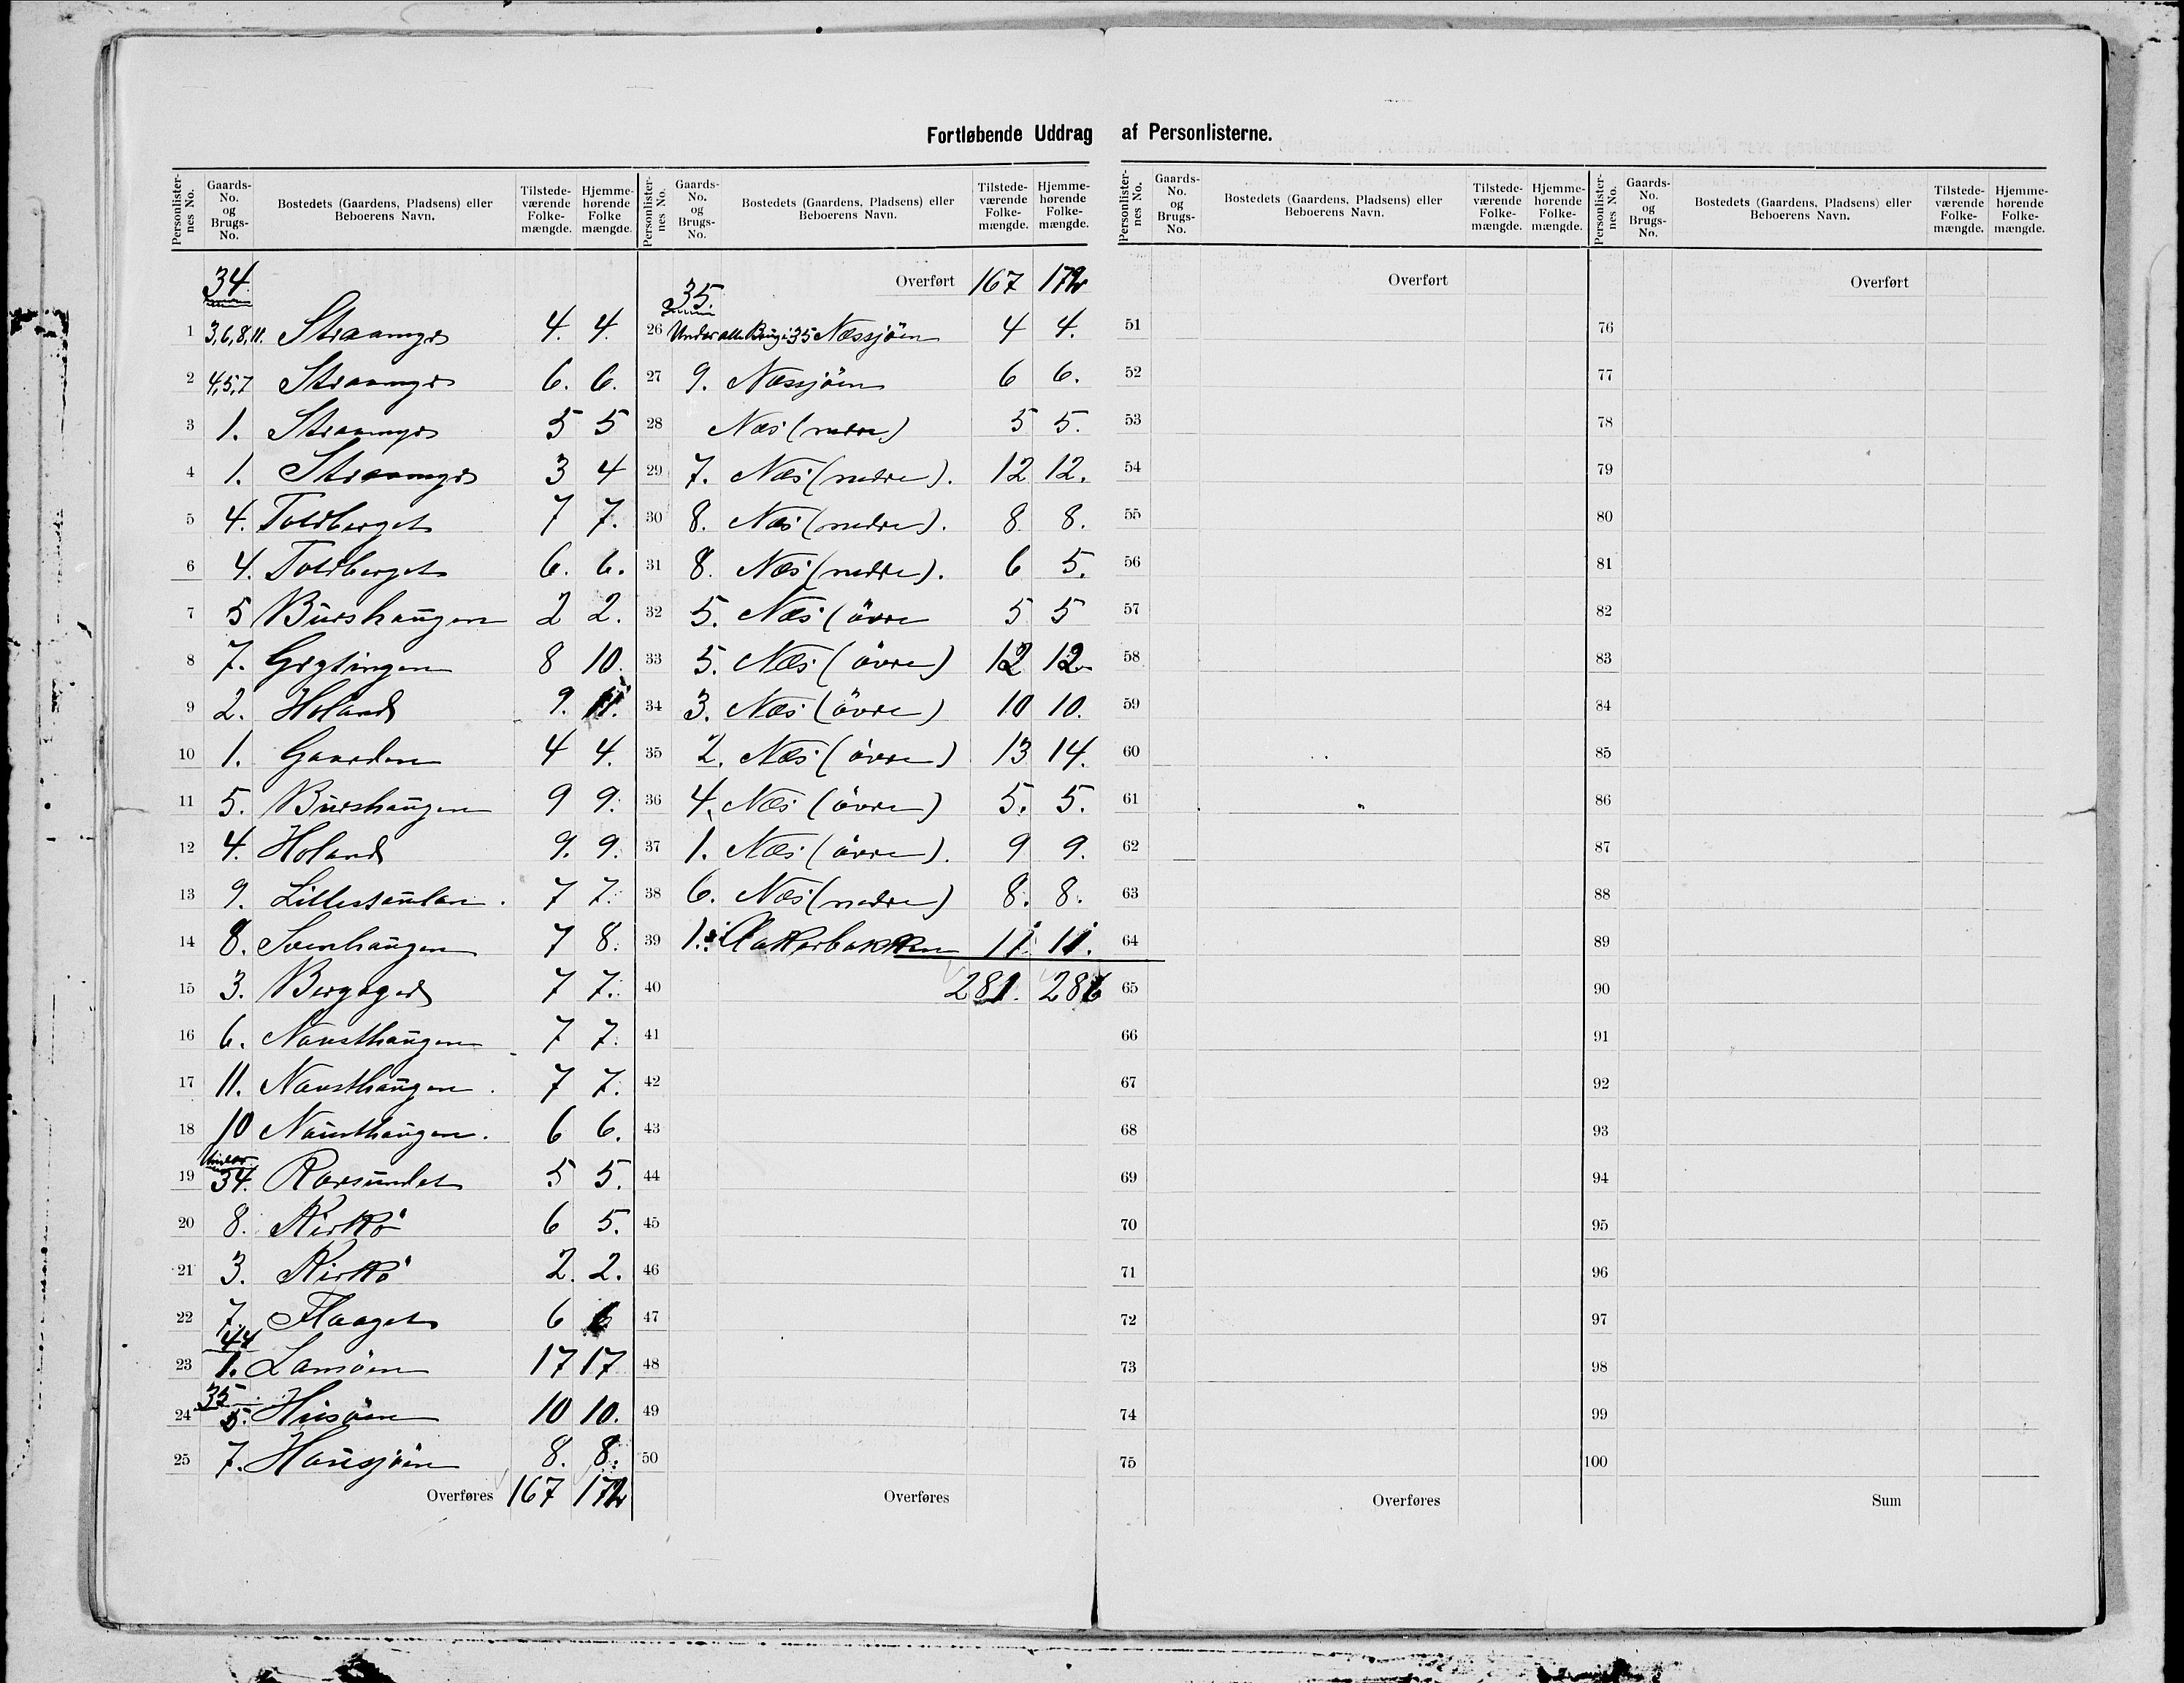 Fortløbende Uddrag af Personlisterne.
Personlister-nes No. Gaards-No. og Brugs-No. Bostedets (Gaardens, Pladsens) eller Beboerens Navn. Tilstede-værende Folke-mængde. Hjemme-hørende Folke mængde.
34.
1 3,6,8,11. Straamyr 4. 4.
2 4,5,7 Straamyr 6. 6.
3 1. Straamyr 5 5
4 1. Straamyr 3 4
5 4. Toldberget 7 7.
6 4. Toldberget 6. 6.
7 5 Burshaugen 2 2.
8 7. Gygtingen 8 10.
9 2. Holand 9. 11.
10 1. Gaarden 4 4.
11 5. Burshaugen 9 9.
12 4. Holand 9. 9.
13 9. 7 7.
14 8. Svenhaugen 7 8.
15 3. 7 7.
16 6. Nausthaugen 7 7.
17 11. Nausthaugen. 7 7.
18 10 Nausthaugen. 6 6.
Under
19 34. Ramsundet 5 5.
20 8. Kirkö 6 5.
21 3. Kirkö 2. 2.
22 7. Flaaget 6 6
44
23 1. Lamöen 17 17
35
24 5. Husöen 10 10.
25 7. Hausjöen 8. 8.
Overføres 167 172
Personlister-nes No. Gaards-No. og Brugs-No. Bostedets (Gaardens, Pladsens) eller Beboerens Navn. Tilstede-værende Folke-mængde. Hjemme-hørende Folke-mængde.
Overført 167 172
35.
26 Under alle Brug i 35 Næssjöen 4 4.
27 9. Næssjöen 6 6.
28 Næs (nedre) 5 5.
29 7. Næs (nedre). 12 12.
30 8. Næs (nedre). 8. 8.
31 8. Næs (nedre). 6 5.
32 5. Næs (övre 5 5
33 5. Næs (övre) 12 12.
34 3. Næs (övre) 10 10.
35 2. Næs (övre) 13 14.
36 4. Næs (övre) 5. 5.
37 1. Næs (övre). 9 9.
38 6. Næs (nedre) 8. 8.
39 1. Klokkerbakken 11. 11.
40 281. 286
41
42
43
44
45
46
47
48
49
50
Overføres
Personlister-nes No. Gaards-No. og Brugs-No. Bostedets (Gaardens, Pladsens) eller Beboerens Navn. Tilstede-værende Folke-mængde. Hjemme-hørende Folke-mængde.
Overført
51
52
53
54
55
56
57
58
59
60
61
62
63
64
65
66
67
68
69
70
71
72
73
74
75
Overføres
Personlister-nes No. Gaards-No. og Brugs-No. Bostedets (Gaardens, Pladsens) eller Beboerens Navn. Tilstede-værende Folke-mængde. Hjemme-hørende Folke-mængde.
Overført
76
77
78
79
80
81
82
83
84
85
86
87
88
89
90
91
92
93
94
95
96
97
98
99
100
Sum